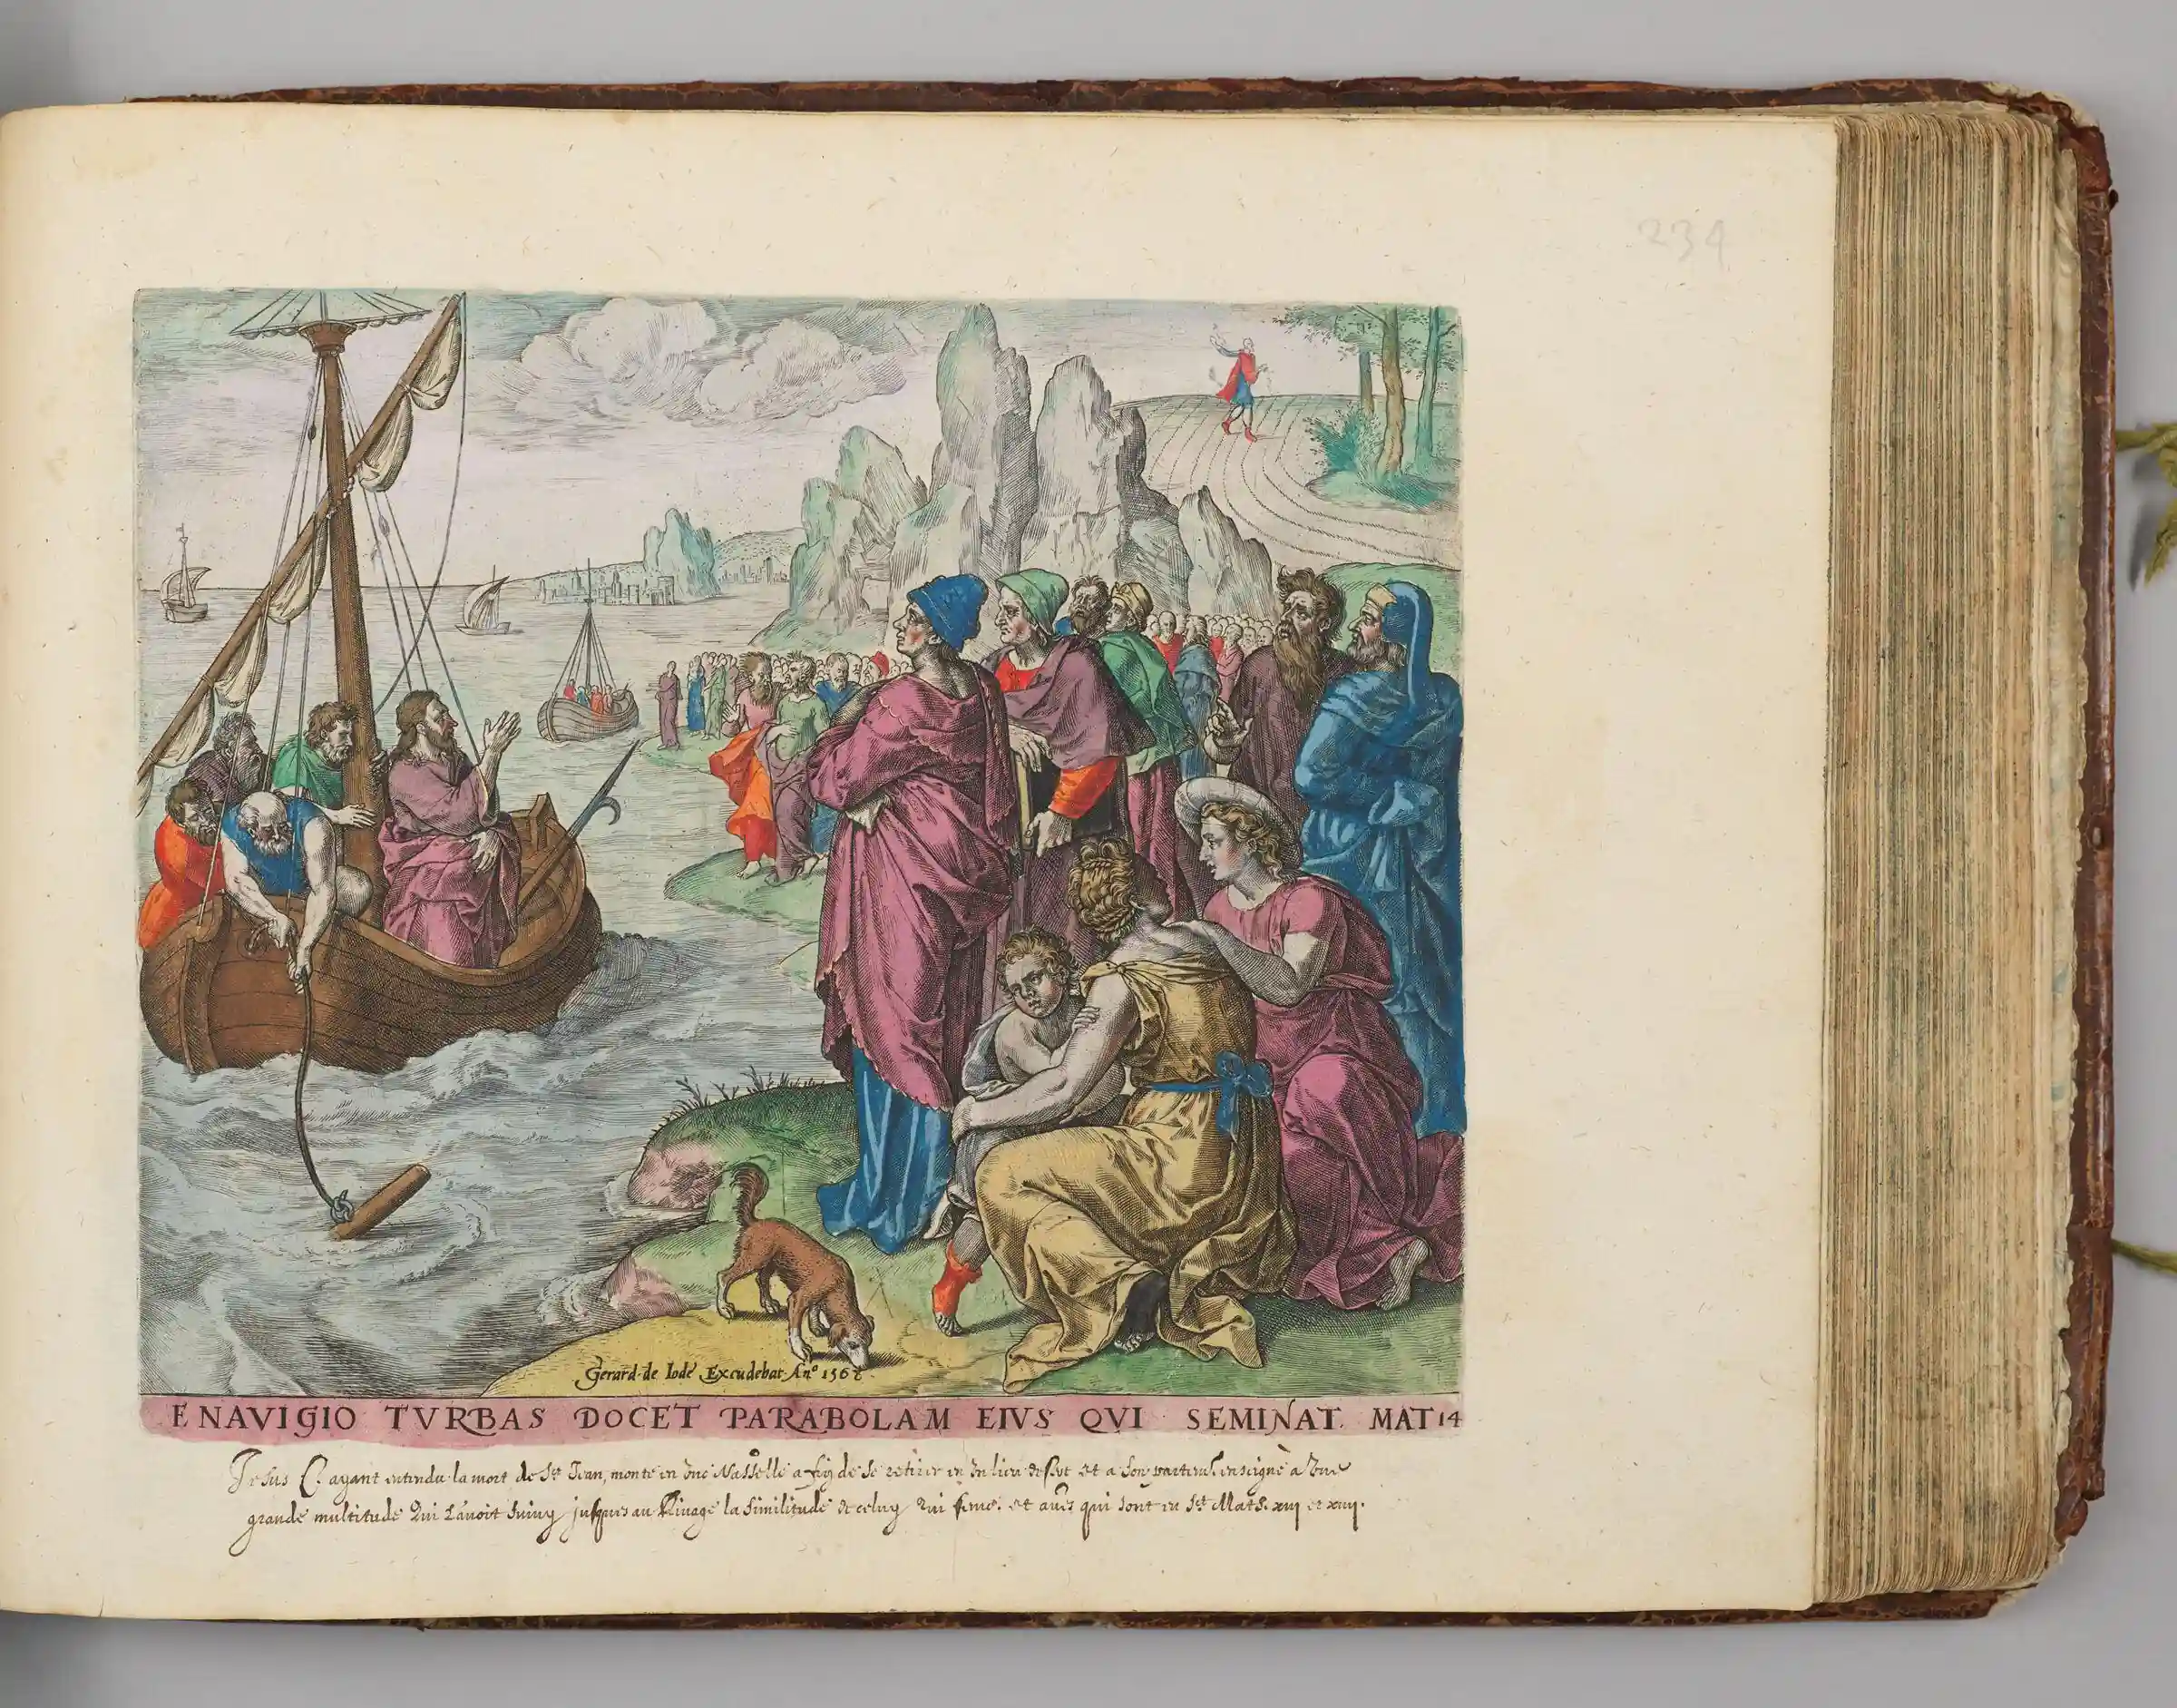 234
Gerard de Iode Excudebat Anº 1568
E NAVIGIO TVRBAS DOCET PARABOLAM EIVS QVI SEMINAT. MAT 14
Jesus C. ayant entendu la mort de St Jean, monte en une Nasselle a fin de se retirer en un lieu et a son enseigne a une
grande multitude qui l'avoit suivy jusques au Rivage la similitude de celuy qui seme. et qui sont en St Math. xiij et xiiij.